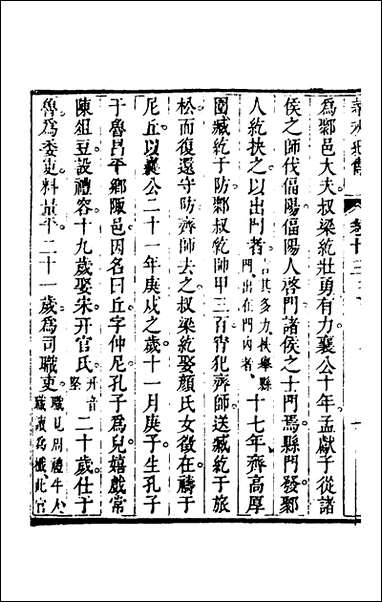 爲鄹邑大夫叔梁紇壯勇有力襄公十年孟獻子從諸
侯之師伐偪陽偪陽人啓門諸侯之士門焉縣門發鄹
人紇抉之以出門者言其多力抉舉縣門出在門內者十七年齊高厚
圍臧紇于防鄹叔紇帥甲三百宵犯齊師送臧紇于旅
松而復還守防齊師去之叔梁紇娶顏氏女徵在禱于
尼丘以襄公二十一年庚戌之歲十一月庚子生孔子
于魯昌平鄉陬邑因名曰丘字仲尼孔子爲兒嬉戲常
陳俎豆設禮容十九歲娶宋幵官氏幵音堅二十歲仕于
魯爲委吏料量平二十一歲爲司職吏職見周禮牛人職讀爲樴此官